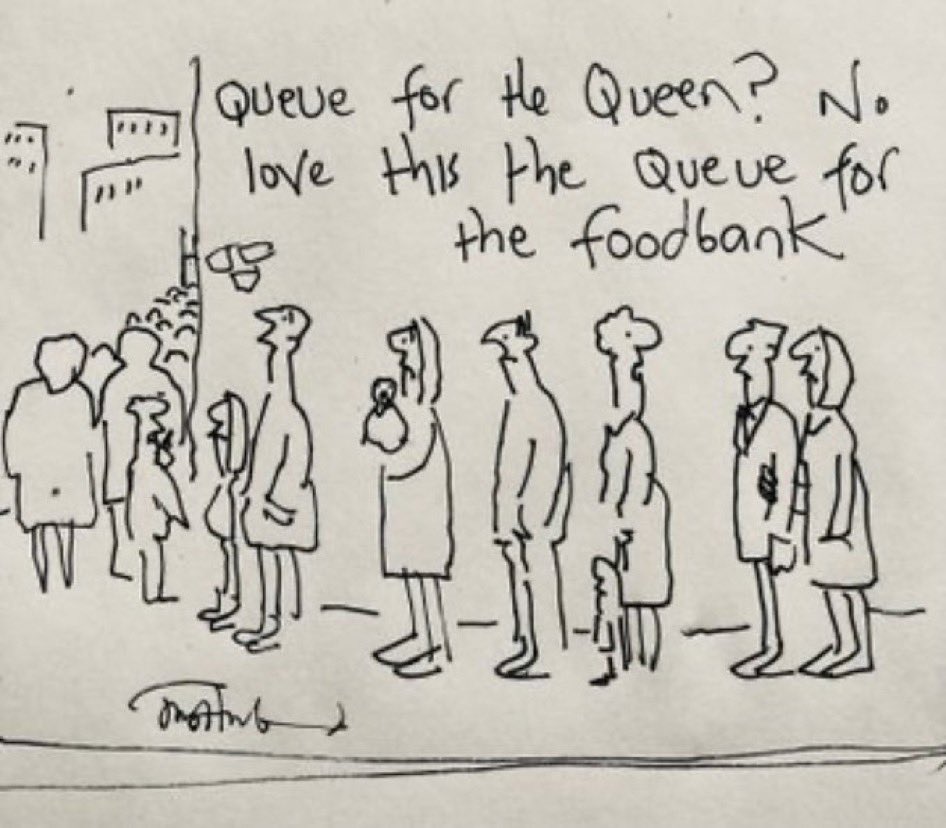 Queue for the Queen? No
love this the Queue for
the foodbank